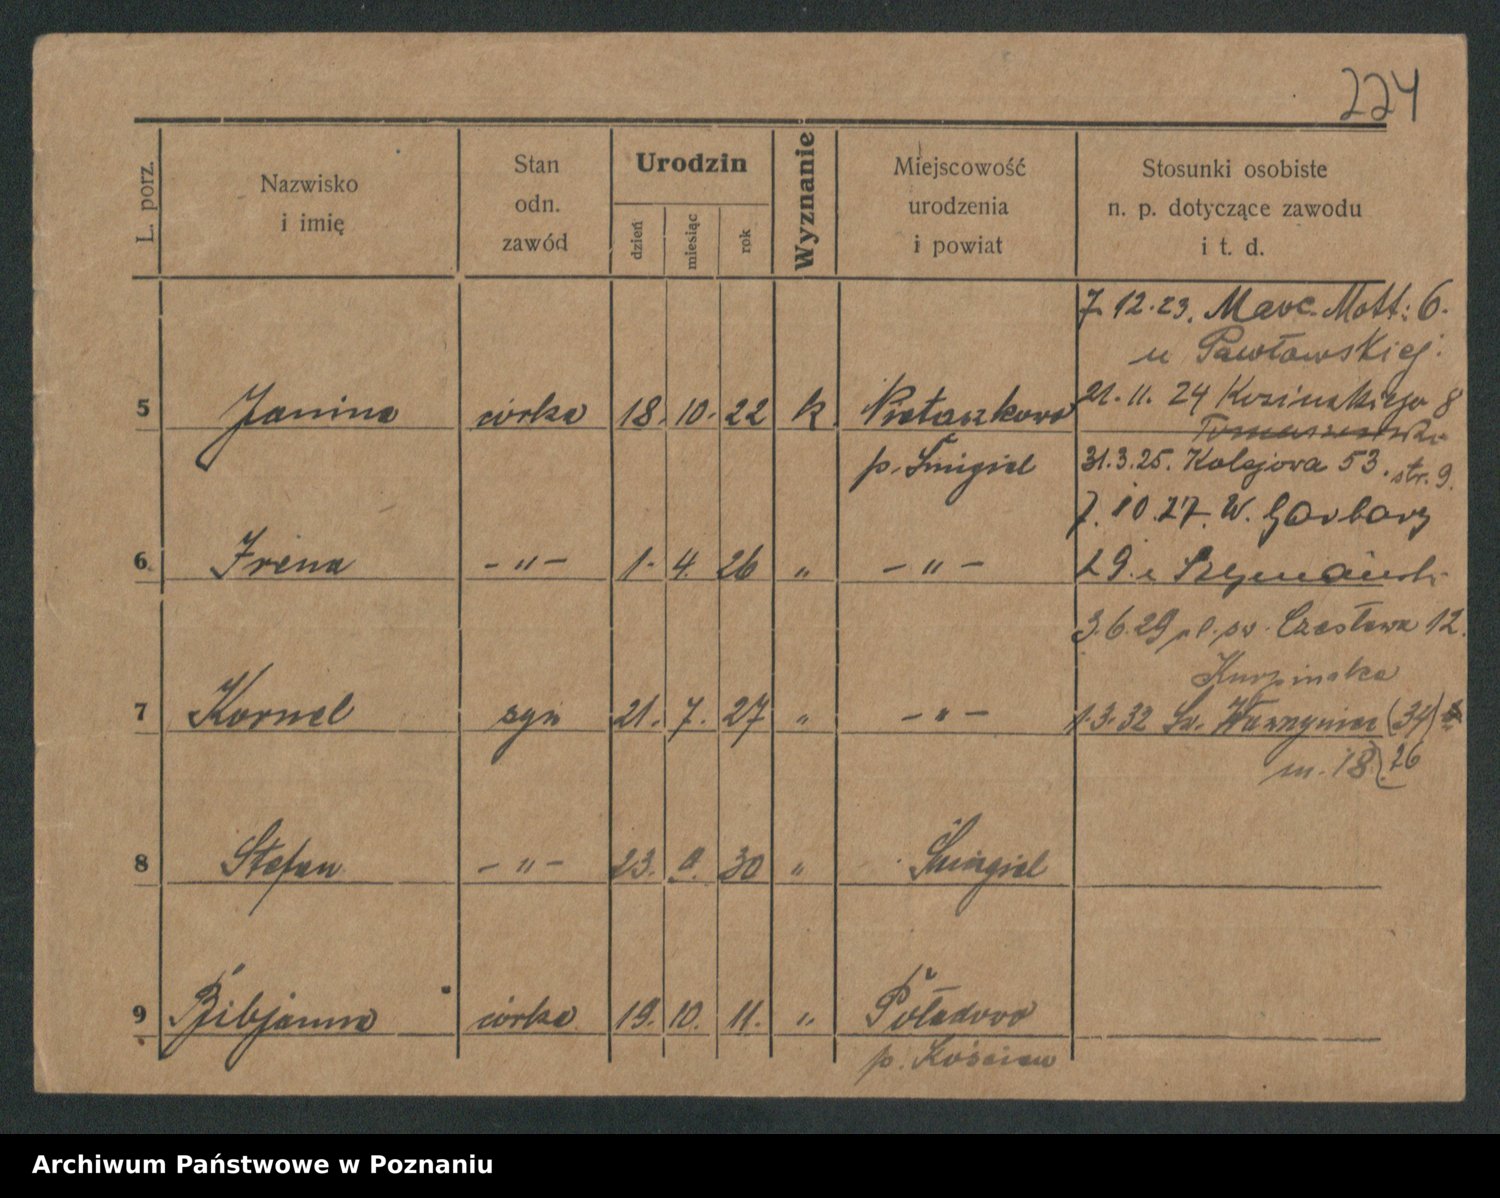 224
L. porz.
Nazwisko
i imię
Stan
odn.
zawód
Urodzin
dzień
miesiąc
rok
Wyznanie
Miejscowość
urodzenia
i powiat
Stosunki osobiste
n. p. dotyczące zawodu
i t. d.
7.12.23. Marc. Mott: 6.
u Pawłowskiej.
5 Janina córka 18. 10. 22 k Nietaszkowo
21.11.24 Kosińskiego 8
p. Śmigiel
31.3.25. Kolejowa 53. str. 9.
7.10.27. W. Garbary
6 Irena -"- 1. 4. 26 " -"-
29.
3.6.29 pl. św. Czesława 12.
Kurpinska
7 Kornel syn 21. 7. 27 " -"-
1.3.32 Św. Wawrzyniec (34)
m. 18). 26
8 Stefan -"- 23. 30 " Śmigiel
9 Bibjanna córka 19. 10. 11. "
p. Kościan
Archiwum Państwowe w Poznaniu